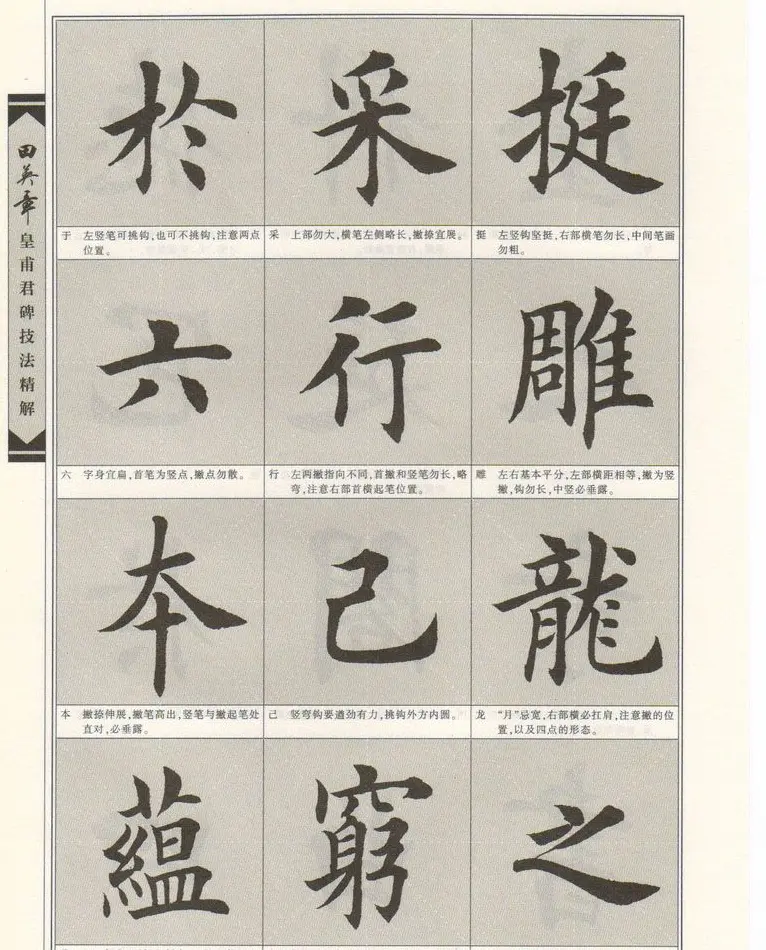 田英章
皇甫君碑技法精解
於 采 挺
于 左竖笔可挑钩，也可不挑钩，注意两点
位置。
采 上部勿大，横笔左侧略长，撇捺宜展。
挺 左竖钩坚挺，右部横笔勿长，中间笔画
勿粗。
六 行 雕
六 字身宜扁，首笔为竖点，撇点勿散。
行 左两撇指向不同，首撇和竖笔勿长，略
弯，注意右部首横起笔位置。
雕 左右基本平分，左部横距相等，撇为竖
撇，钩勿长，中竖必垂露。
本 己 龍
本 撇捺伸展，撇笔高出，竖笔与撇起笔处
直对，必垂露。
己 竖弯钩要遒劲有力，挑钩外方内圆。
龙 “月”忌宽，右部横必扛肩，注意撇的位
置，以及四点的形态。
蘊 窮 之